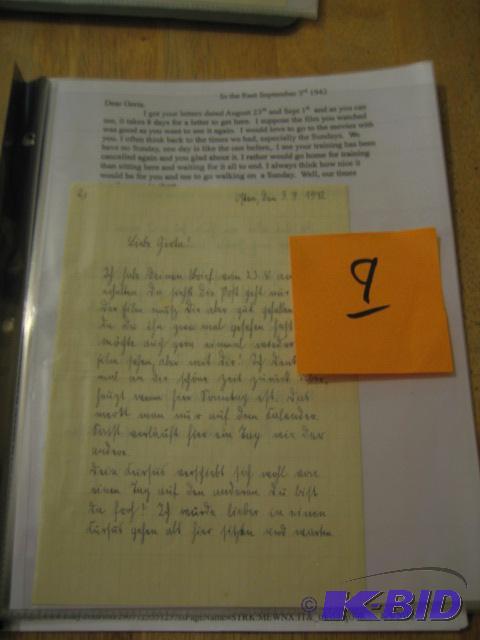 In the East September 3rd 1942
Dear Gerta,
I got your letters dated August 23rd and Sept 1st and as you can
see, it takes 8 days for a letter to get here. I suppose the film you watched
was good as you want to see it again. I would love to go to the movies with
you. I often think back to the times we had, especially the Sundays. We
have no Sunday, one day is like the one before. I see your training has been
cancelled again and you glad about it. I rather would go home for training
than sitting here and waiting for it all to end. I always think how nice it
would be for you and me to go walking on a Sunday. Well, our times
Osten, den 3.9.1942
Liebe Gerta!
Ich habe Deinen Brief vom 23.8.
erhalten. Du siehst die Post geht
Der Film muß Dir aber gut gefallen
da Du ihn zwei mal gesehen hast
möchte auch gern einmal wieder
Film sehen, aber mit Dir! Ich denk
mal an die schöne Zeit zurück
wenn hier Sonntag ist. Das
merkt man nur auf dem Kalender.
Sonst verläuft hier ein Tag wie der
andere.
Dein Kursus verschiebt sich wohl von
einen Tag auf den anderen. Du bist
da froh! Ich würde lieber in einen
Kursus gehen als hier sitzen und warten
9
© K-BID